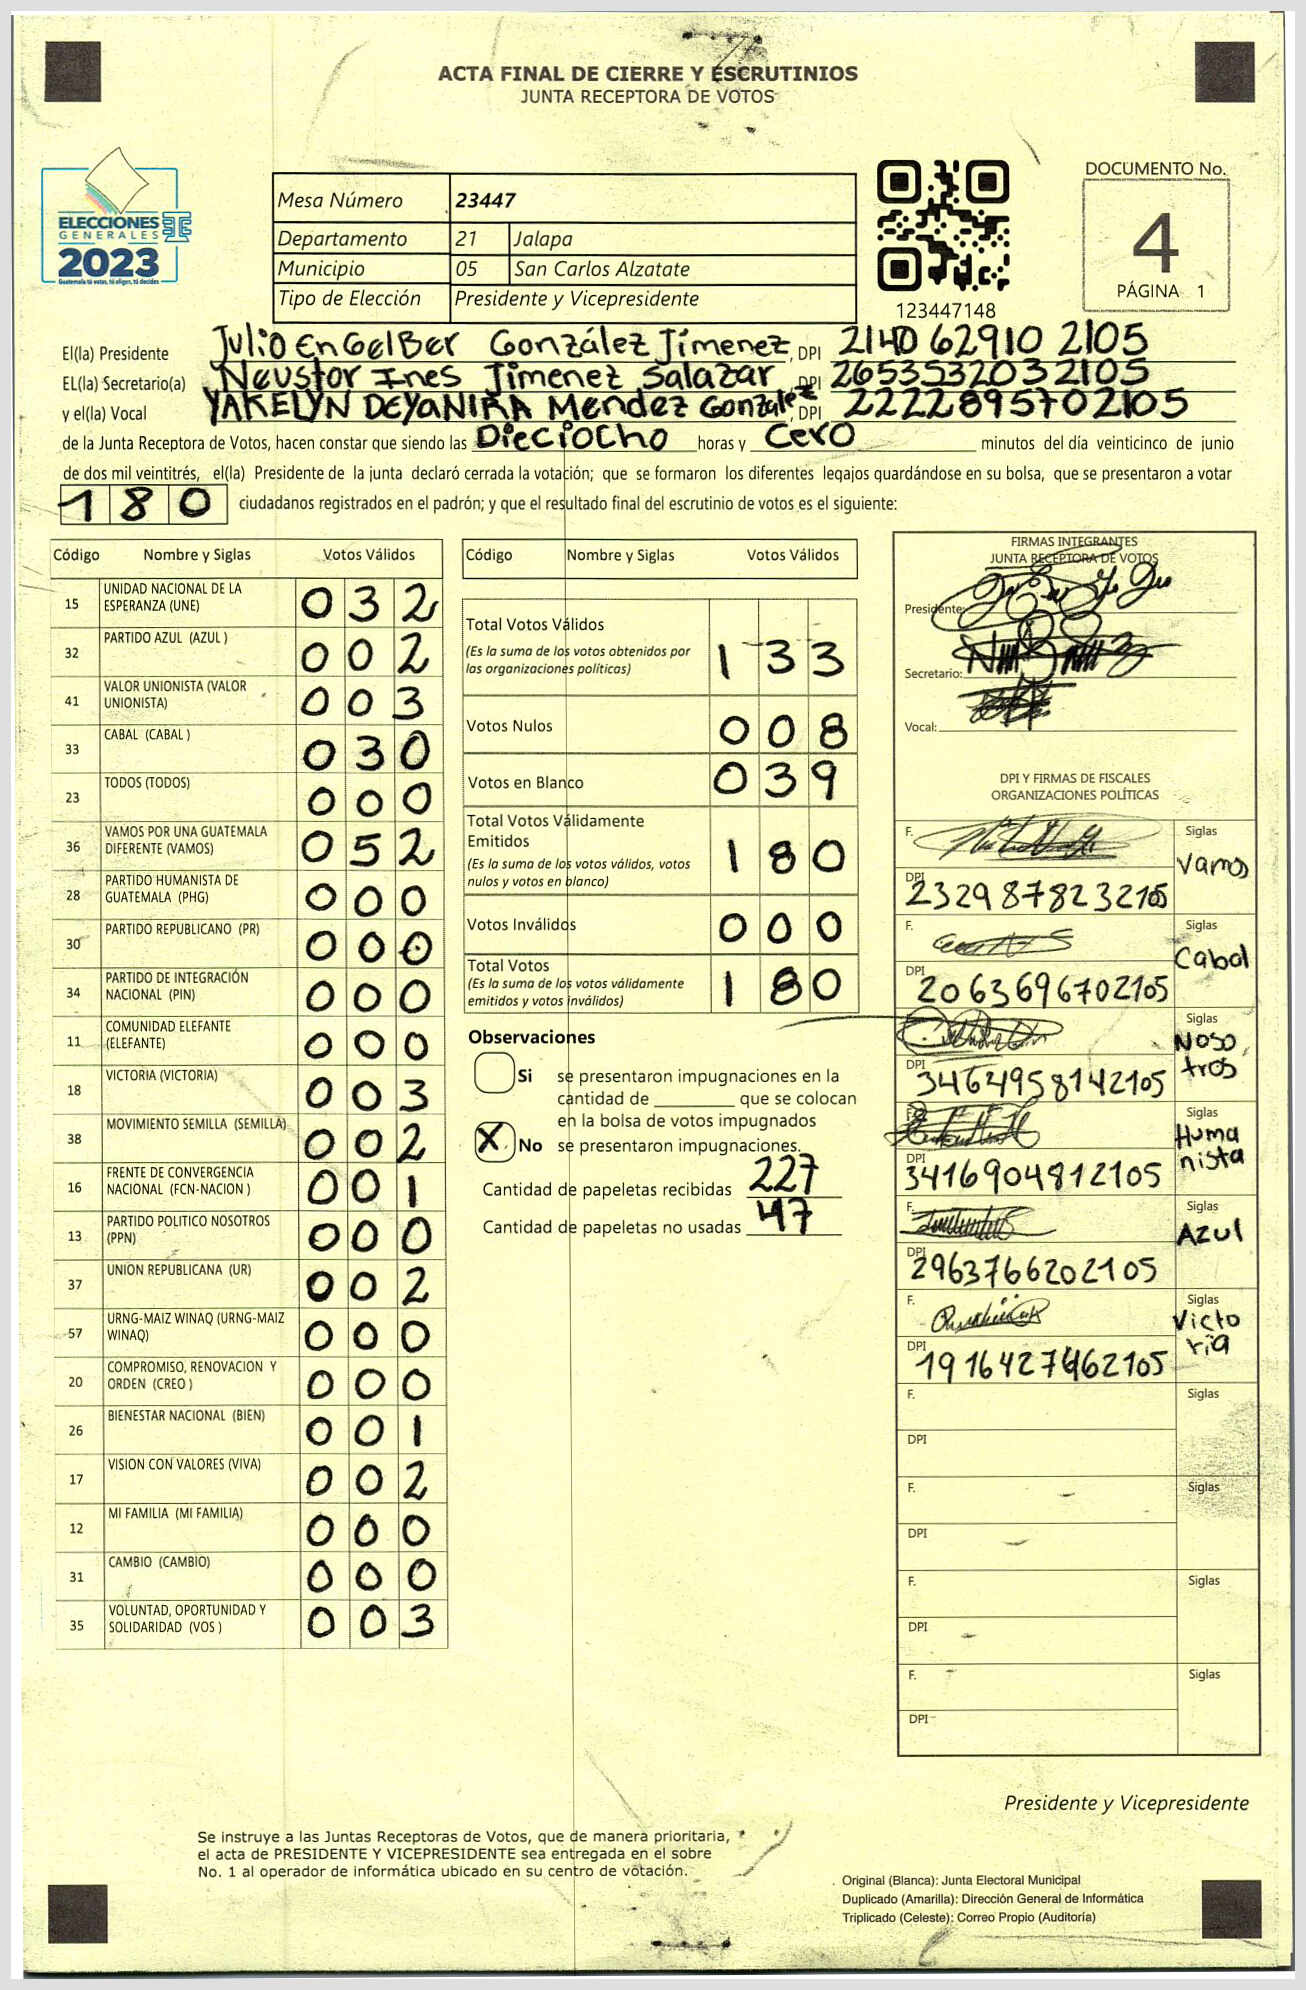 ACTA FINAL DE CIERRE Y ESCRUTINIOS
JUNTA RECEPTORA DE VOTOS
ELECCIONES
GENERALES
2023
Guatemala tú votas, tú eliges, tú decides
Mesa Número 23447
Departamento 21 Jalapa
Municipio 05 San Carlos Alzatate
Tipo de Elección Presidente y Vicepresidente
123447148
DOCUMENTO No.
4
PÁGINA 1
El(la) Presidente Julio EnGelBer González Jímenez, DPI 2140 62910 2105
EL(la) Secretario(a) Neustor Ines Jimenez Salazar, DPI 2653532032105
y el(la) Vocal YAKELYN DEYaNIRA Mendez Gonzalez, DPI 2222895702105
de la Junta Receptora de Votos, hacen constar que siendo las Dieciocho horas y Cero minutos del día veinticinco de junio
de dos mil veintitrés, el(la) Presidente de la junta declaró cerrada la votación; que se formaron los diferentes legajos guardándose en su bolsa, que se presentaron a votar
180 ciudadanos registrados en el padrón; y que el resultado final del escrutinio de votos es el siguiente:
Código Nombre y Siglas Votos Válidos
15 UNIDAD NACIONAL DE LA ESPERANZA (UNE) 032
32 PARTIDO AZUL (AZUL ) 002
41 VALOR UNIONISTA (VALOR UNIONISTA) 003
33 CABAL (CABAL ) 030
23 TODOS (TODOS) 000
36 VAMOS POR UNA GUATEMALA DIFERENTE (VAMOS) 052
28 PARTIDO HUMANISTA DE GUATEMALA (PHG) 000
30 PARTIDO REPUBLICANO (PR) 000
34 PARTIDO DE INTEGRACIÓN NACIONAL (PIN) 000
11 COMUNIDAD ELEFANTE (ELEFANTE) 000
18 VICTORIA (VICTORIA) 003
38 MOVIMIENTO SEMILLA (SEMILLA) 002
16 FRENTE DE CONVERGENCIA NACIONAL (FCN-NACION ) 001
13 PARTIDO POLITICO NOSOTROS (PPN) 000
37 UNION REPUBLICANA (UR) 002
57 URNG-MAIZ WINAQ (URNG-MAIZ WINAQ) 000
20 COMPROMISO, RENOVACION Y ORDEN (CREO ) 000
26 BIENESTAR NACIONAL (BIEN) 001
17 VISION CON VALORES (VIVA) 002
12 MI FAMILIA (MI FAMILIA) 000
31 CAMBIO (CAMBIO) 000
35 VOLUNTAD, OPORTUNIDAD Y SOLIDARIDAD (VOS ) 003
Código Nombre y Siglas Votos Válidos
Total Votos Válidos 133
(Es la suma de los votos obtenidos por
las organizaciones políticas)
Votos Nulos 008
Votos en Blanco 039
Total Votos Válidamente
Emitidos 180
(Es la suma de los votos válidos, votos
nulos y votos en blanco)
Votos Inválidos 000
Total Votos 180
(Es la suma de los votos válidamente
emitidos y votos inválidos)
Observaciones
Si se presentaron impugnaciones en la
cantidad de ________ que se colocan
en la bolsa de votos impugnados
X No se presentaron impugnaciones.
Cantidad de papeletas recibidas 227
Cantidad de papeletas no usadas 47
FIRMAS INTEGRANTES
JUNTA RECEPTORA DE VOTOS
Presidente:
Secretario:
Vocal:
DPI Y FIRMAS DE FISCALES
ORGANIZACIONES POLÍTICAS
F. Siglas Vamos
DPI 2329878232105
F. Siglas Cabal
DPI 2063696702105
Siglas Nosotros
DPI 3464958142105
F. Siglas Humanista
DPI 3416904812105
F. Siglas Azul
DPI 2963766202105
F. Siglas Victoria
DPI 1916427462105
F. Siglas
DPI
F. Siglas
DPI
F. Siglas
DPI
F. Siglas
DPI
Presidente y Vicepresidente
Se instruye a las Juntas Receptoras de Votos, que de manera prioritaria,
el acta de PRESIDENTE Y VICEPRESIDENTE sea entregada en el sobre
No. 1 al operador de informática ubicado en su centro de votación.
Original (Blanca): Junta Electoral Municipal
Duplicado (Amarilla): Dirección General de Informática
Triplicado (Celeste): Correo Propio (Auditoría)